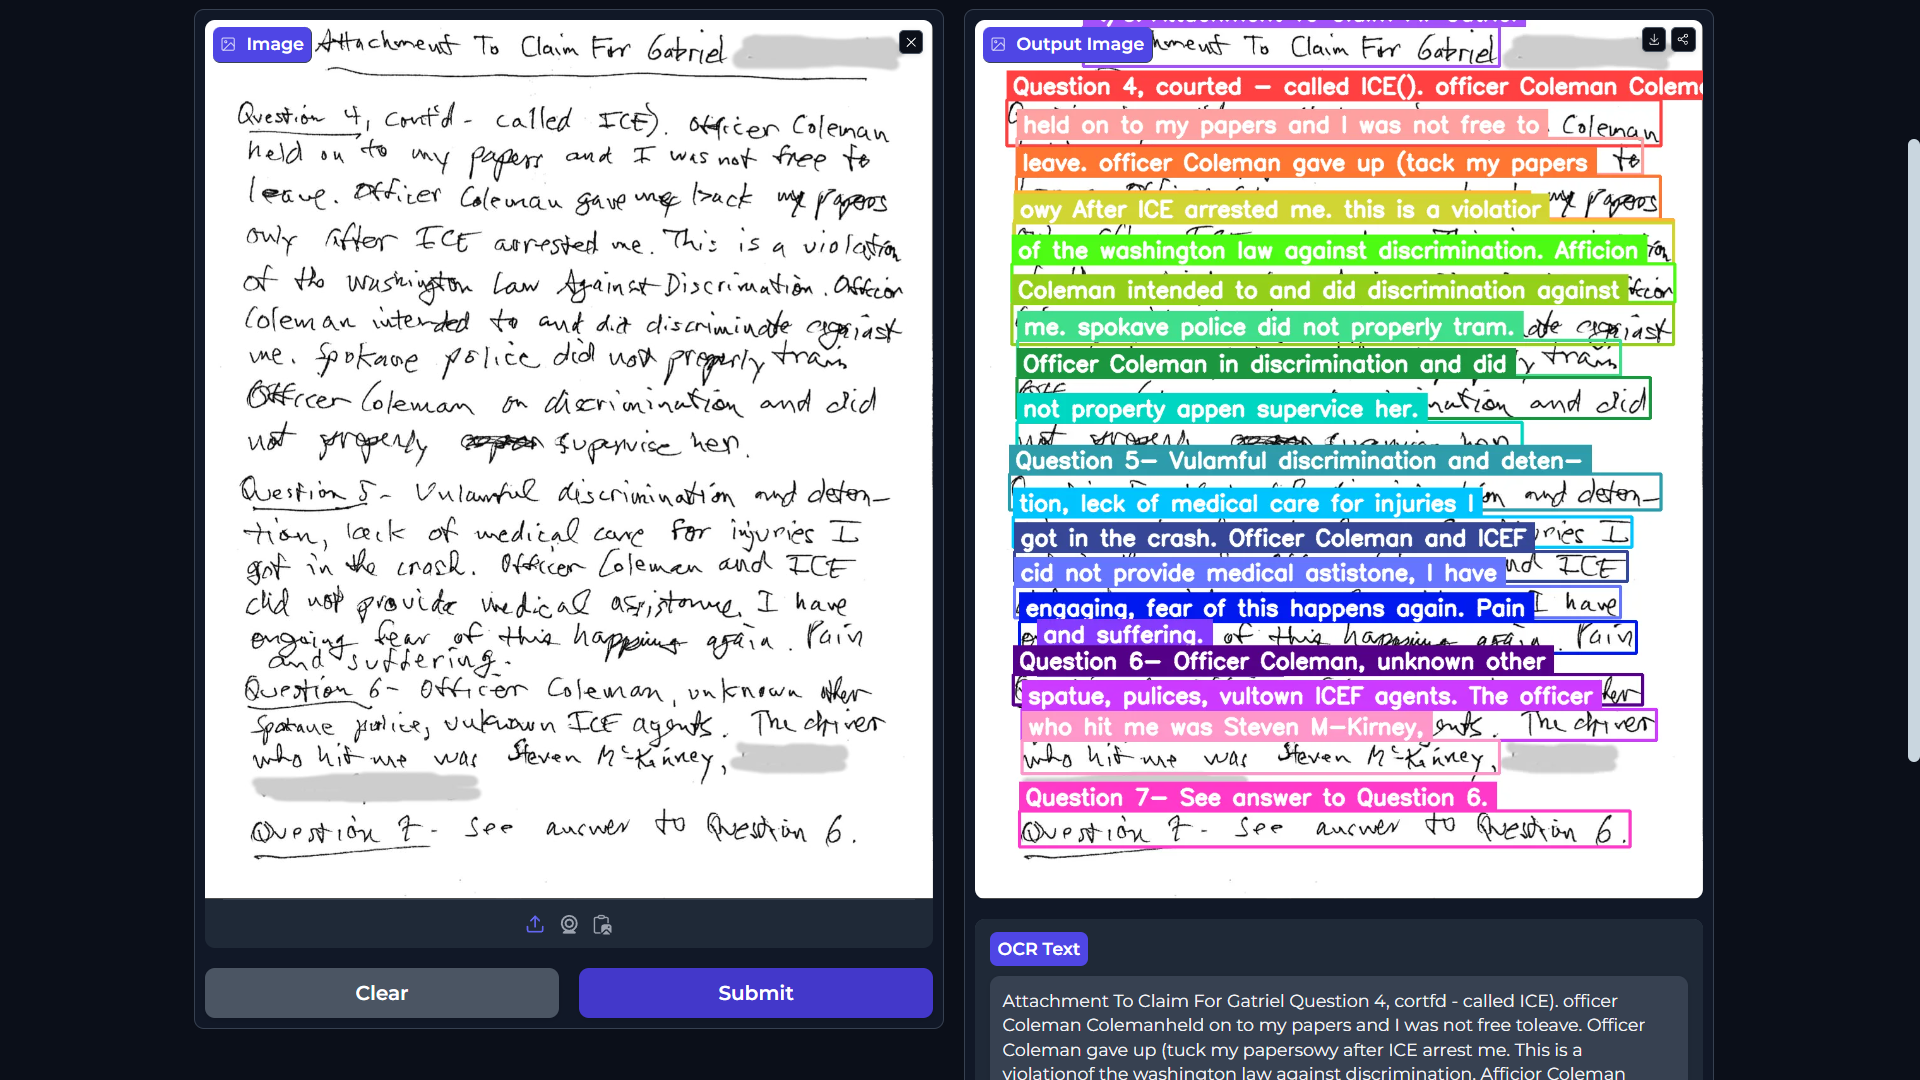 Image
Attachment To Claim For Gabriel
Question 4, cont'd - called ICE). Officer Coleman
held on to my papers and I was not free to
leave. Officer Coleman gave me back my papers
only After ICE arrested me. This is a violation
of the Washington Law Against Discrimation. Officer
Coleman intended to and did discriminate against
me. Spokane police did not properly train
Officer Coleman on discrimination and did
not properly supervise her.
Question 5- Unlawful discrimination and deten-
tion, lack of medical care for injuries I
got in the crash. Officer Coleman and ICE
did not provide medical assistance. I have
ongoing fear of this happening again. Pain
and suffering.
Question 6- Officer Coleman, unknown other
Spokane police, unknown ICE agents. The driver
who hit me was Steven Mc-Kinney,
Question 7- See answer to Question 6.
Clear
Submit
Output Image
hment To Claim For Gabriel
Question 4, courted - called ICE(). officer Coleman Colem
Coleman
held on to my papers and I was not free to
to
leave. officer Coleman gave up (tack my papers
my papers
owy After ICE arrested me. this is a violatior
of the washington law against discrimination. Afficion
Coleman intended to and did discrimination against
against
me. spokave police did not properly tram.
train
Officer Coleman in discrimination and did
and did
not property appen supervice her.
Question 5- Vulamful discrimination and deten-
and deten-
tion, leck of medical care for injuries I
I
got in the crash. Officer Coleman and ICEF
ICE
cid not provide medical astistone, I have
I have
engaging, fear of this happens again. Pain
and suffering.
of this happening again. Pain
Question 6- Officer Coleman, unknown other
spatue, pulices, vultown ICEF agents. The officer
The driver
who hit me was Steven M-Kirney,
who hit me was Steven Mc-Kinney,
Question 7- See answer to Question 6.
Question 7- See answer to Question 6.
OCR Text
Attachment To Claim For Gatriel Question 4, cortfd - called ICE). officer
Coleman Colemanheld on to my papers and I was not free toleave. Officer
Coleman gave up (tuck my papersowy after ICE arrest me. This is a
violationof the washington law against discrimination. Afficior Coleman